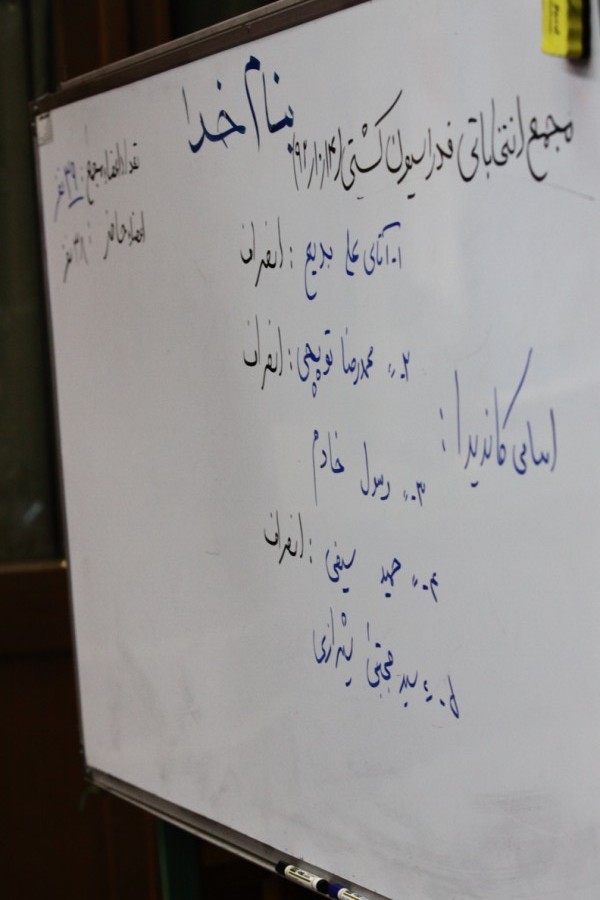 بنام خدا
مجمع انتخاباتی فدراسیون کشتی (۹۲/۱۰/۱۴)
تعداد اعضاء مجمع: ۳۹ نفر
اعضاء حاضر: ۳۸ نفر
اسامی کاندیدا:
۱- آقای علی بدیع: انصراف
۲- " محمدرضا توپچی: انصراف
۳- " رسول خادم
۴- " حمید سیفی: انصراف
۵- " سید مجتبی شیرازی